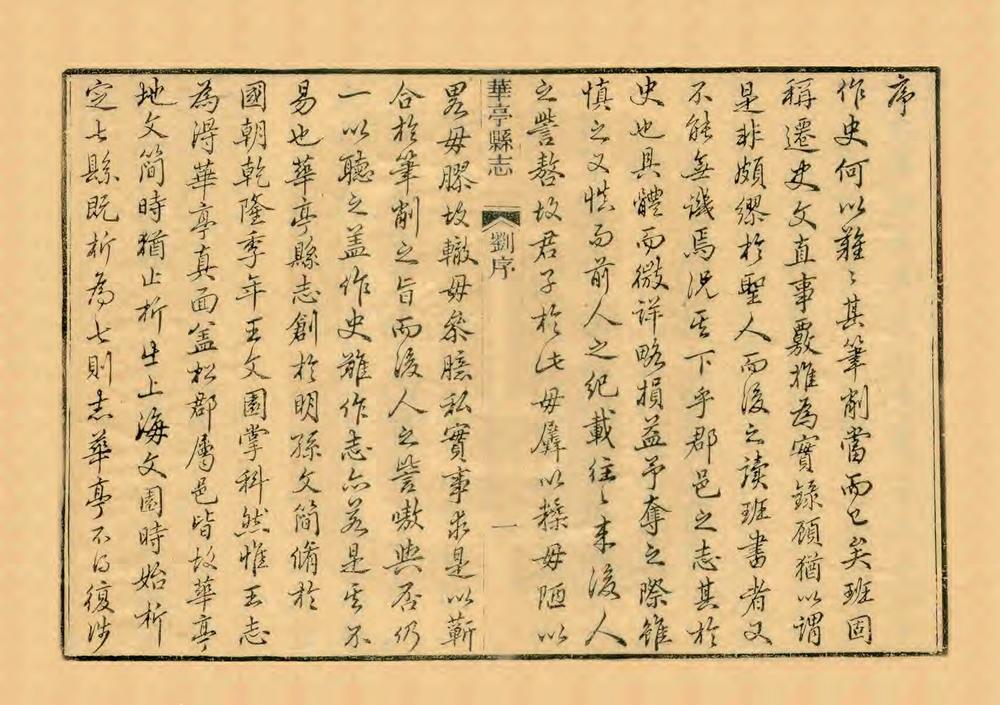 序
作史何以難〻其筆削當而已矣班固
稱遷史文直事覈推為實錄顧猶以謂
是非頗繆於聖人而後之讀班書者又
不能無譏焉況其下乎郡邑之志其於
史也具體而微詳略損益予奪之際雖
慎之又慎而前人之紀載往〻来後人
之訾謷故君子於此毋羼以糅毋陋以
華亭縣志
劉序
一
畧毋膠故轍毋叅臆私實事求是以蘄
合於筆削之旨而後人之訾嗷與否仍
一以聽之盖作史難作志亦若是其不
易也華亭縣志創於明孫文簡脩於
國朝乾隆季年王文園掌科然惟王志
為得華亭真面盖松郡屬邑皆故華亭
地文簡時猶止析出上海文園時始析
定七縣既析為七則志華亭不得復涉